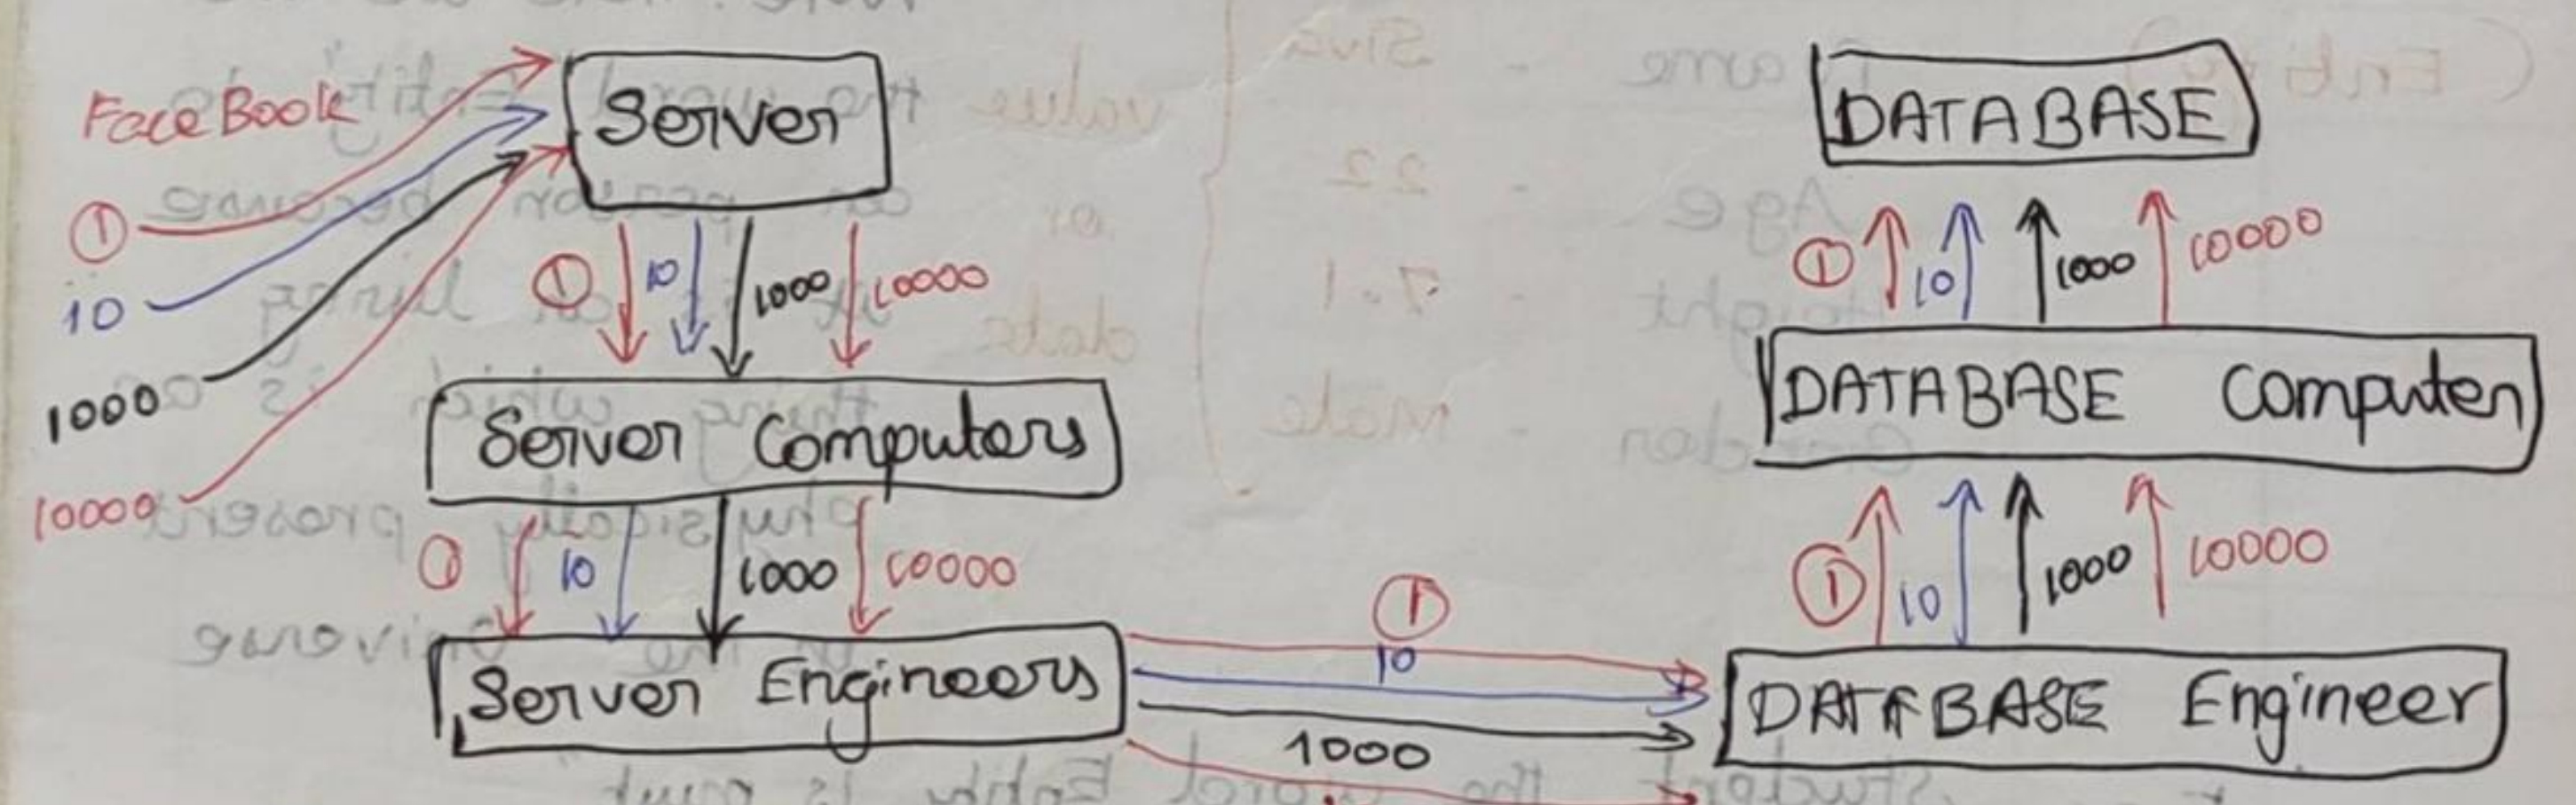 FaceBook
①
10
1000
10000
Server
① 10 1000 10000
Server Computers
① 10 1000 10000
Server Engineers
①
10
1000
DATABASE
① 10 1000 10000
DATABASE Computer
① 10 1000 10000
DATABASE Engineer